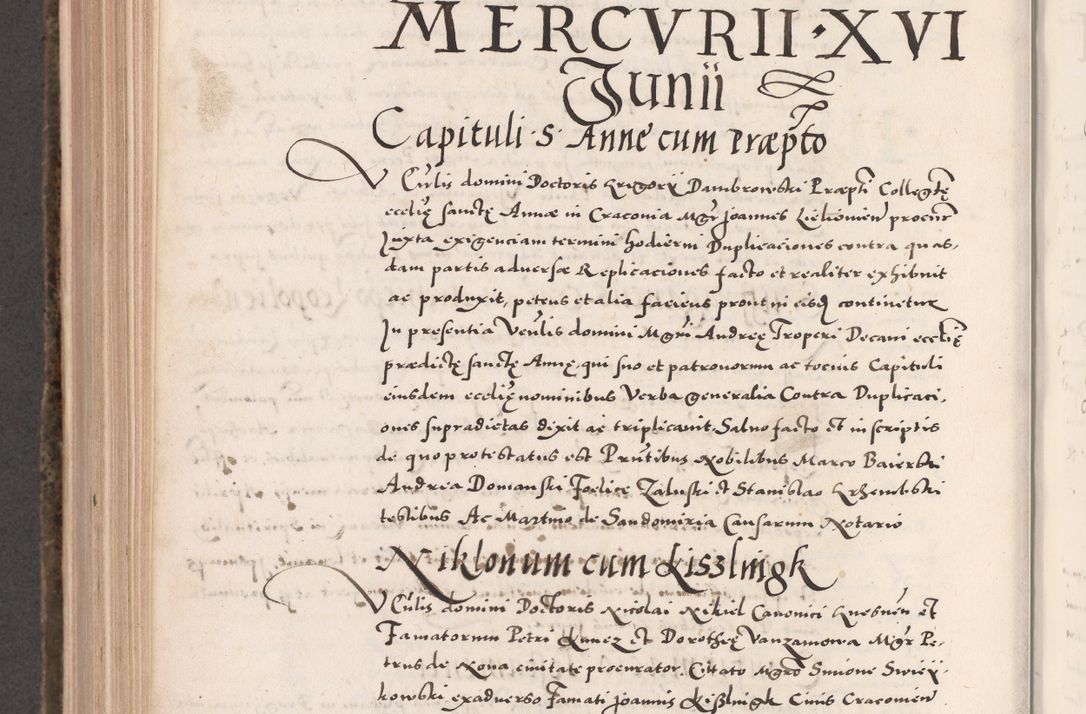 MERCVRII · XVI
Junii
Capituli · S · Anne cum Præpto
VCulis domini Doctoris Grigorii Dambrowski Præpti Collegtę
ecclię sanctę Annæ in Cracovia Mgr Joannes procur
Juxta exigenciam termini hodierni Duplicaciones contra quas,
dam partis adversæ Replicaciones facto et realiter exhibuit
ac produxit, petens et alia faciens prout in eisd continetur
In presentia Venlis domini Mgri Andreę Troperi Decani ecclię
prædictę sanctę Annę, qui suo et patronorum ac tocius Capituli
eiusdem ecclię nominibus Verba generalia Contra Duplicaci,
ones supradictas dixit ac triplicavit. Salvo facto et in scriptis
de quo protestatus est Prntibus Nobilibus Marco Baierski
Andrea Domanski Foelice Zaluski et Stanislao
testibus Ac Martino de Sandomiria Causarum Notario
Niklonum cum Kiszlingk
VCulis domini Doctoris Nicolai Nikiel Canonici Gnesnen et
Famatorum Petri Kunez et Dorotheę Vanzamowa Mgr Pe,
trus de Nova civitate procurator. Citato Mgro Simone Swiexi,
kowski ex adverso Famati Joannis Kißlingk Civis Cracovien